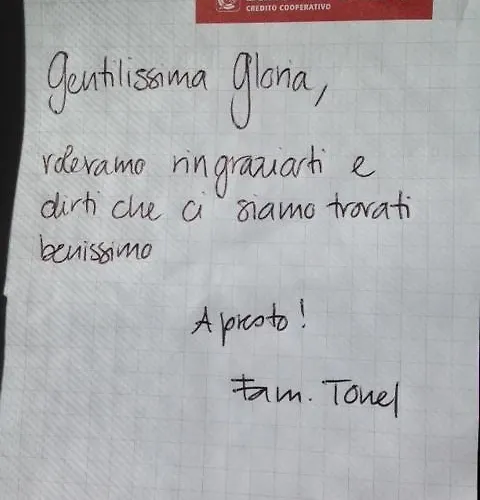 CREDITO COOPERATIVO
Gentilissima Gloria,
volevamo ringraziarti e
dirti che ci siamo trovati
benissimo
A presto!
Fam. Tonel